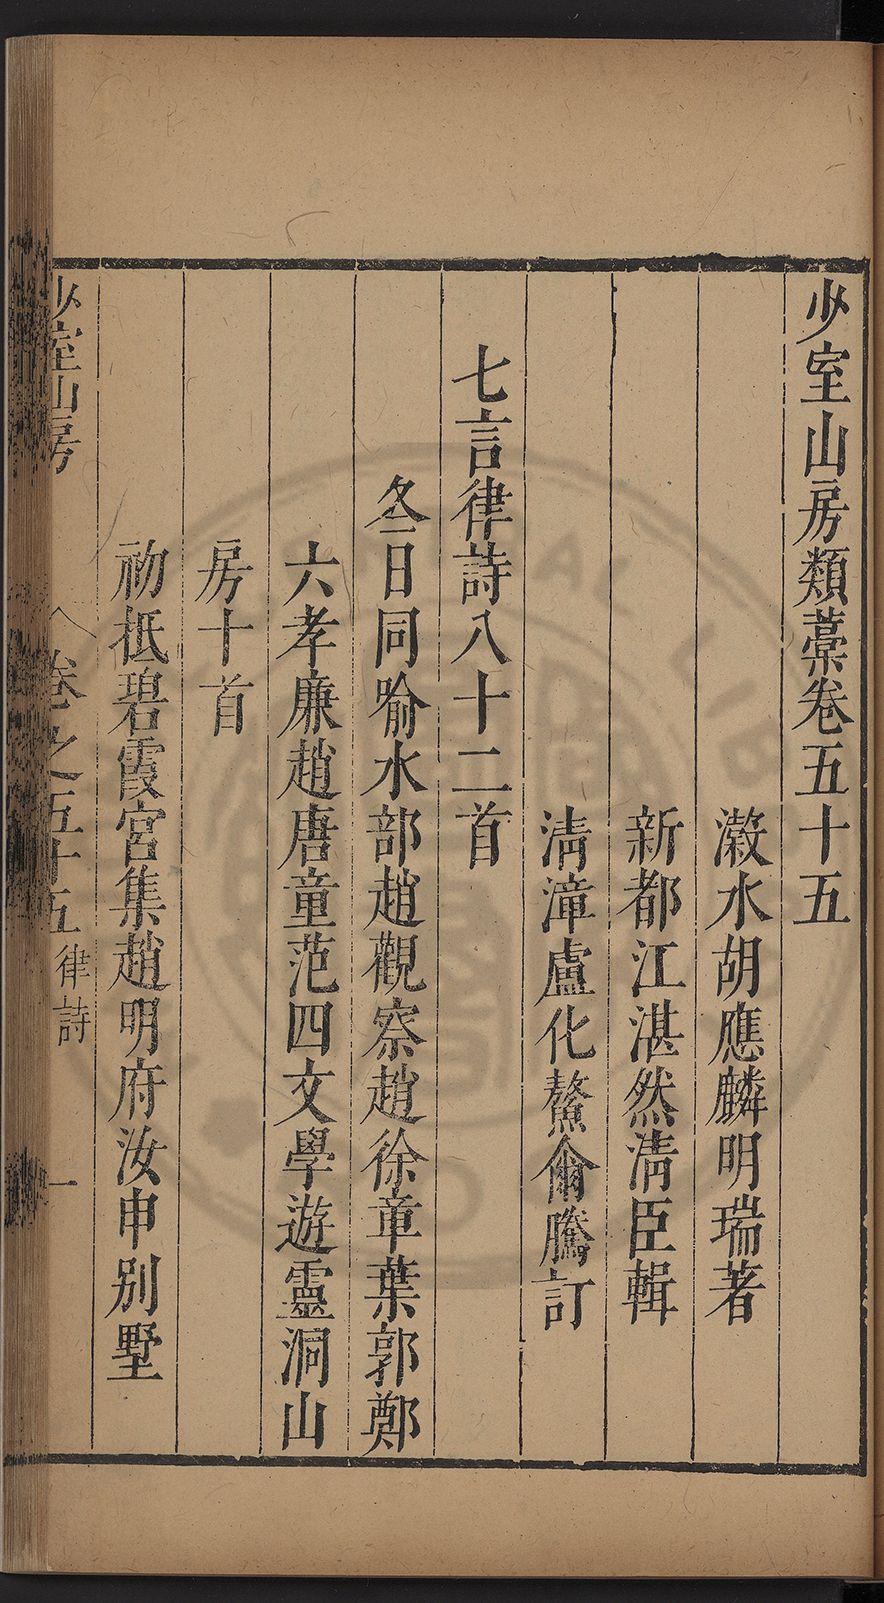 少室山房類藁卷五十五
瀔水胡應麟明瑞著
新都江湛然清臣輯
清漳盧化鰲爾騰訂
七言律詩八十二首
冬日同喻水部趙觀察趙徐章葉郭鄭
六孝廉趙唐童范四文學遊靈洞山
房十首
初抵碧霞宮集趙明府汝申別墅
少室山房 卷之五十五 律詩 一